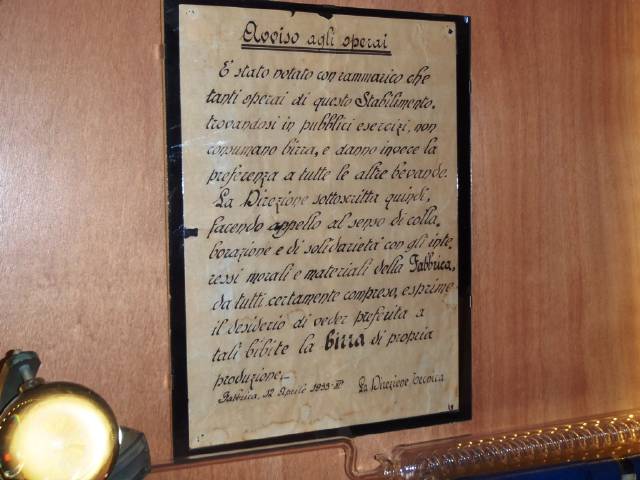 Avviso agli operai
E' stato notato con rammarico che
tanti operai di questo Stabilimento,
trovandosi in pubblici esercizi, non
consumano birra, e danno invece la
preferenza a tutte le altre bevande.
La Direzione sottoscritta quindi,
facendo appello al senso di colla-
borazione e di solidarietà con gli inte-
ressi morali e materiali della Fabbrica,
da tutti certamente compreso, esprime
il desiderio di veder preferita a
tali bibite la birra di propria
produzione.
Fabbrica, 12 Aprile 1933-XI La Direzione Tecnica